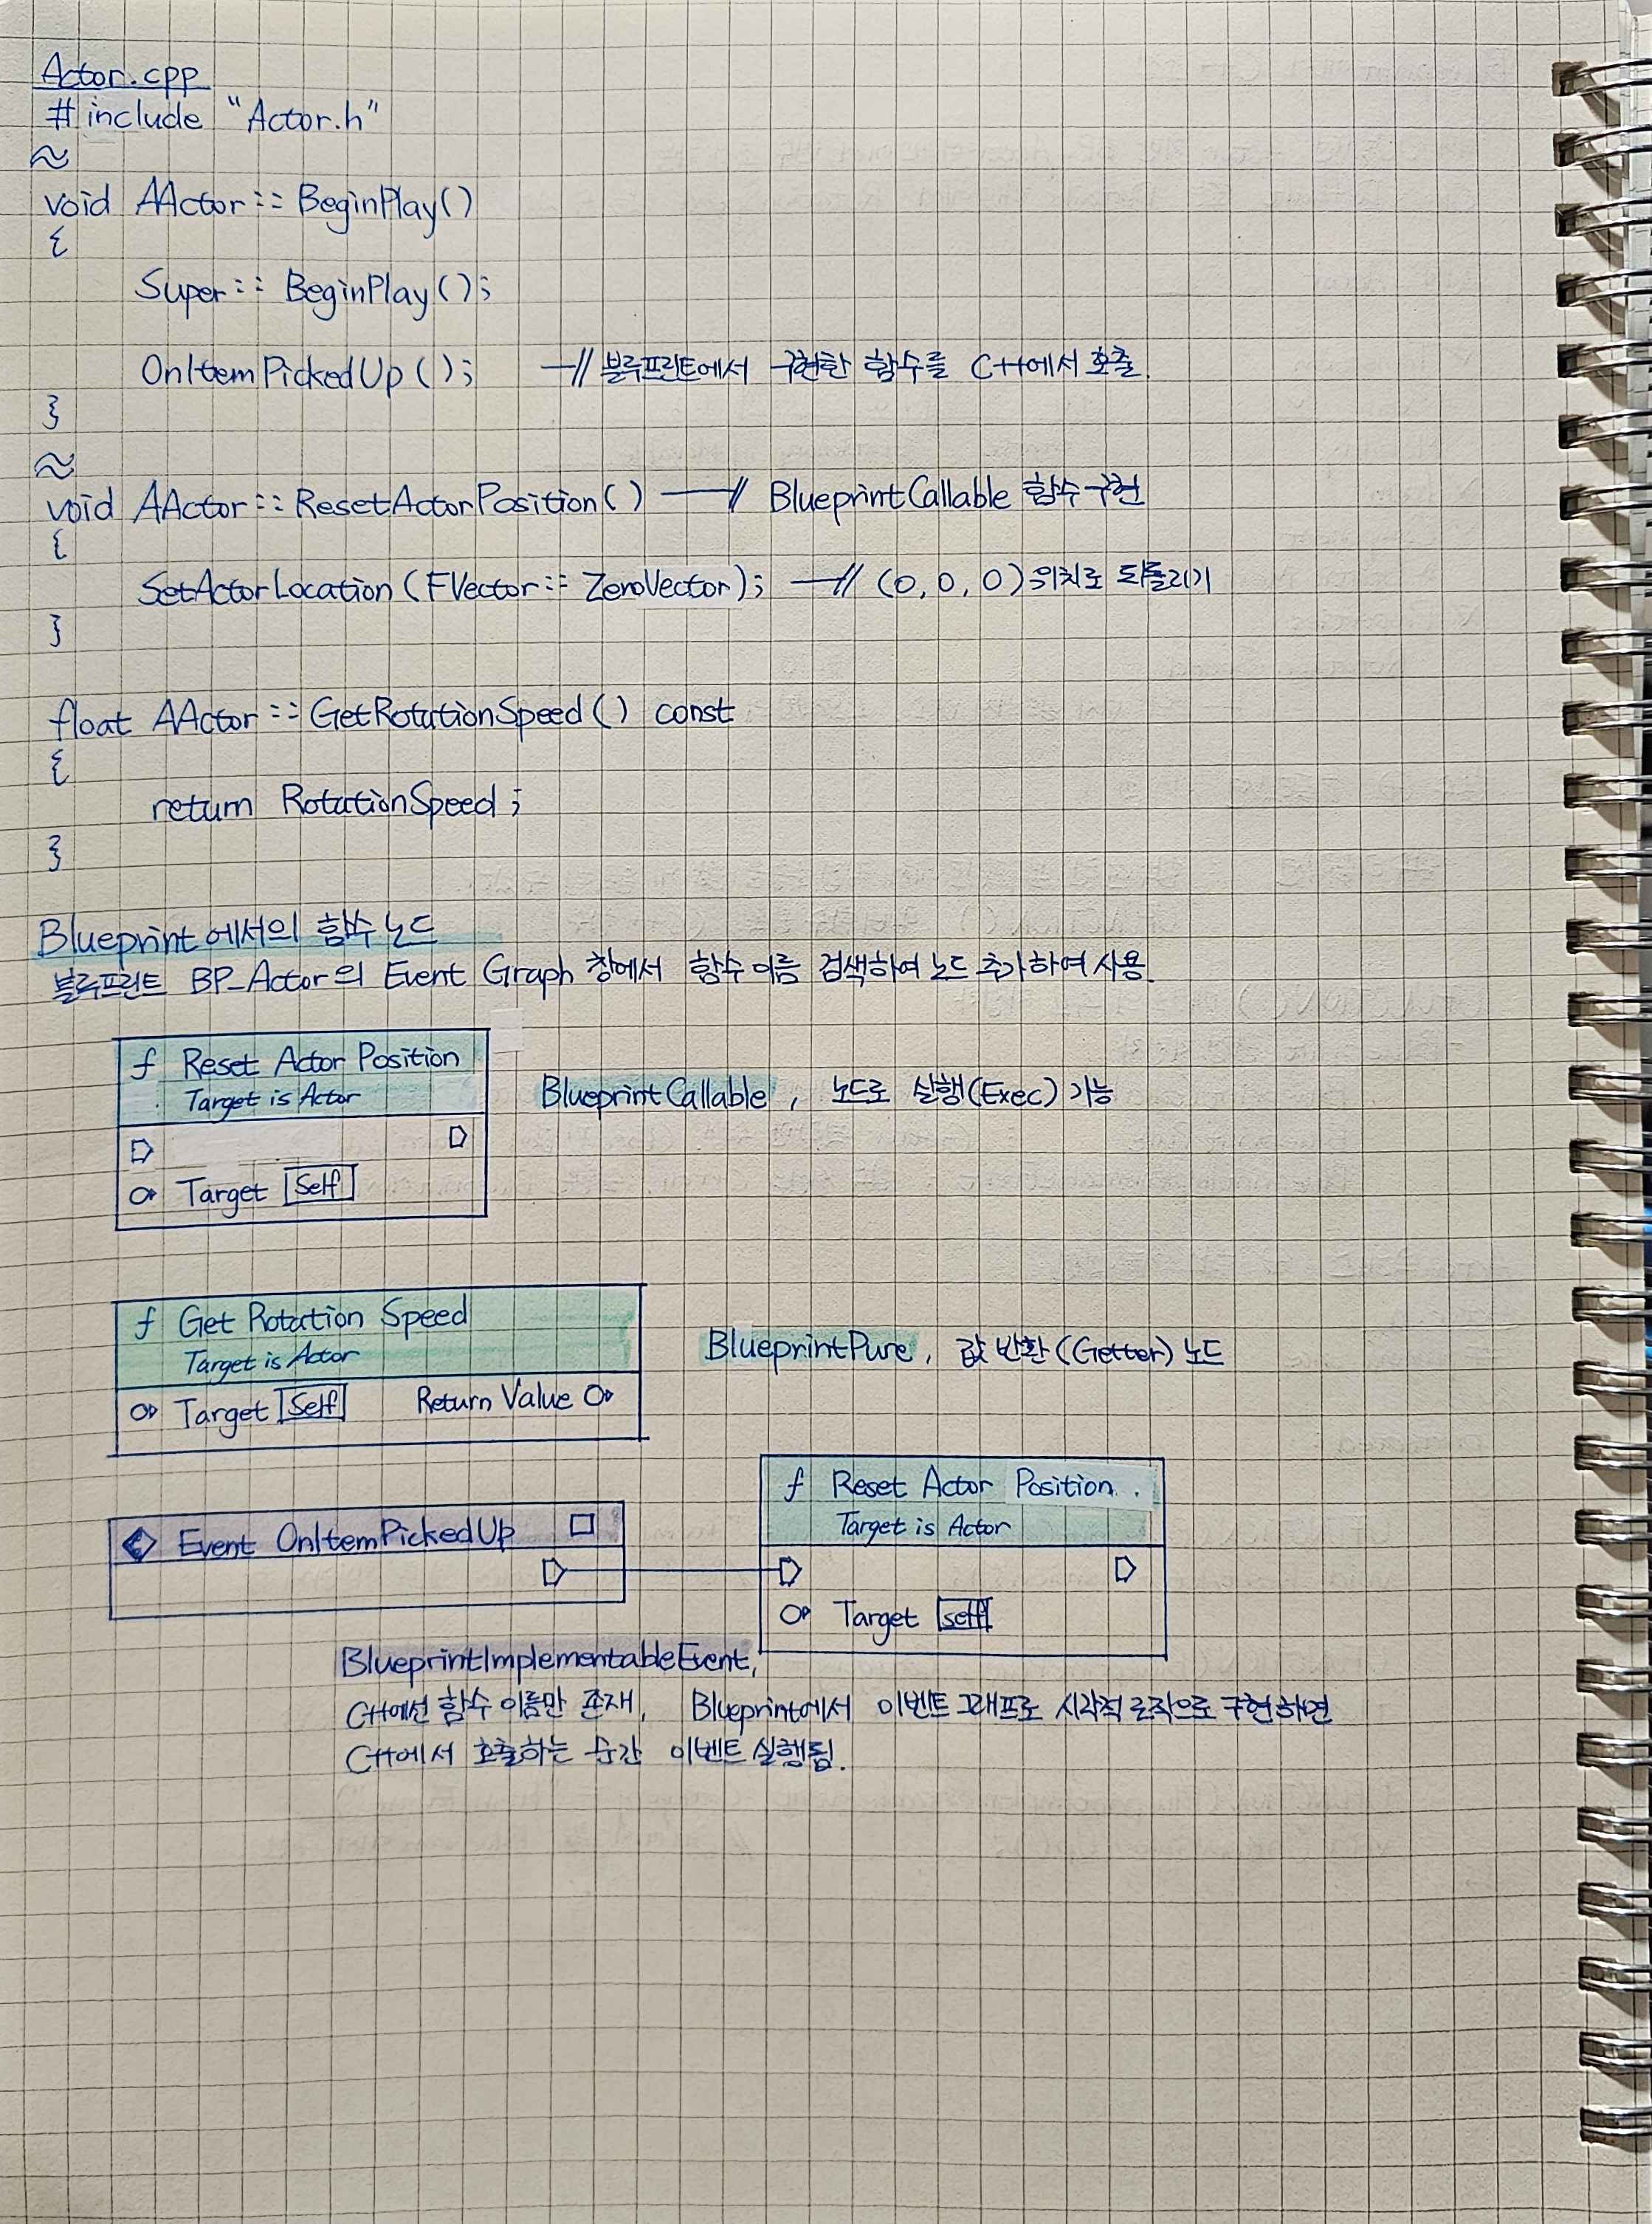 Actor.cpp
#include "Actor.h"
≈
void AActor::BeginPlay()
{
Super::BeginPlay();
OnItemPickedUp(); —// 블루프린트에서 구현한 함수를 C++에서 호출.
}
≈
void AActor::ResetActorPosition() —// BlueprintCallable 함수 구현
{
SetActorLocation(FVector::ZeroVector); —// (0, 0, 0) 위치로 되돌리기
}
float AActor::GetRotationSpeed() const
{
return RotationSpeed;
}
Blueprint에서의 함수 노드
블루프린트 BP_Actor의 Event Graph 창에서 함수 이름 검색하여 노드 추가하여 사용.
f Reset Actor Position
Target is Actor
BlueprintCallable, 노드로 실행(Exec) 가능
Target Self
f Get Rotation Speed
Target is Actor
BlueprintPure, 값 반환(Getter) 노드
Target Self Return Value
f Reset Actor Position.
Target is Actor
Event OnItemPickedUp
Target self
BlueprintImplementableEvent,
C++에선 함수 이름만 존재, Blueprint에서 이벤트 그래프로 시각적 로직으로 구현하면
C++에서 호출하는 순간 이벤트 실행됨.